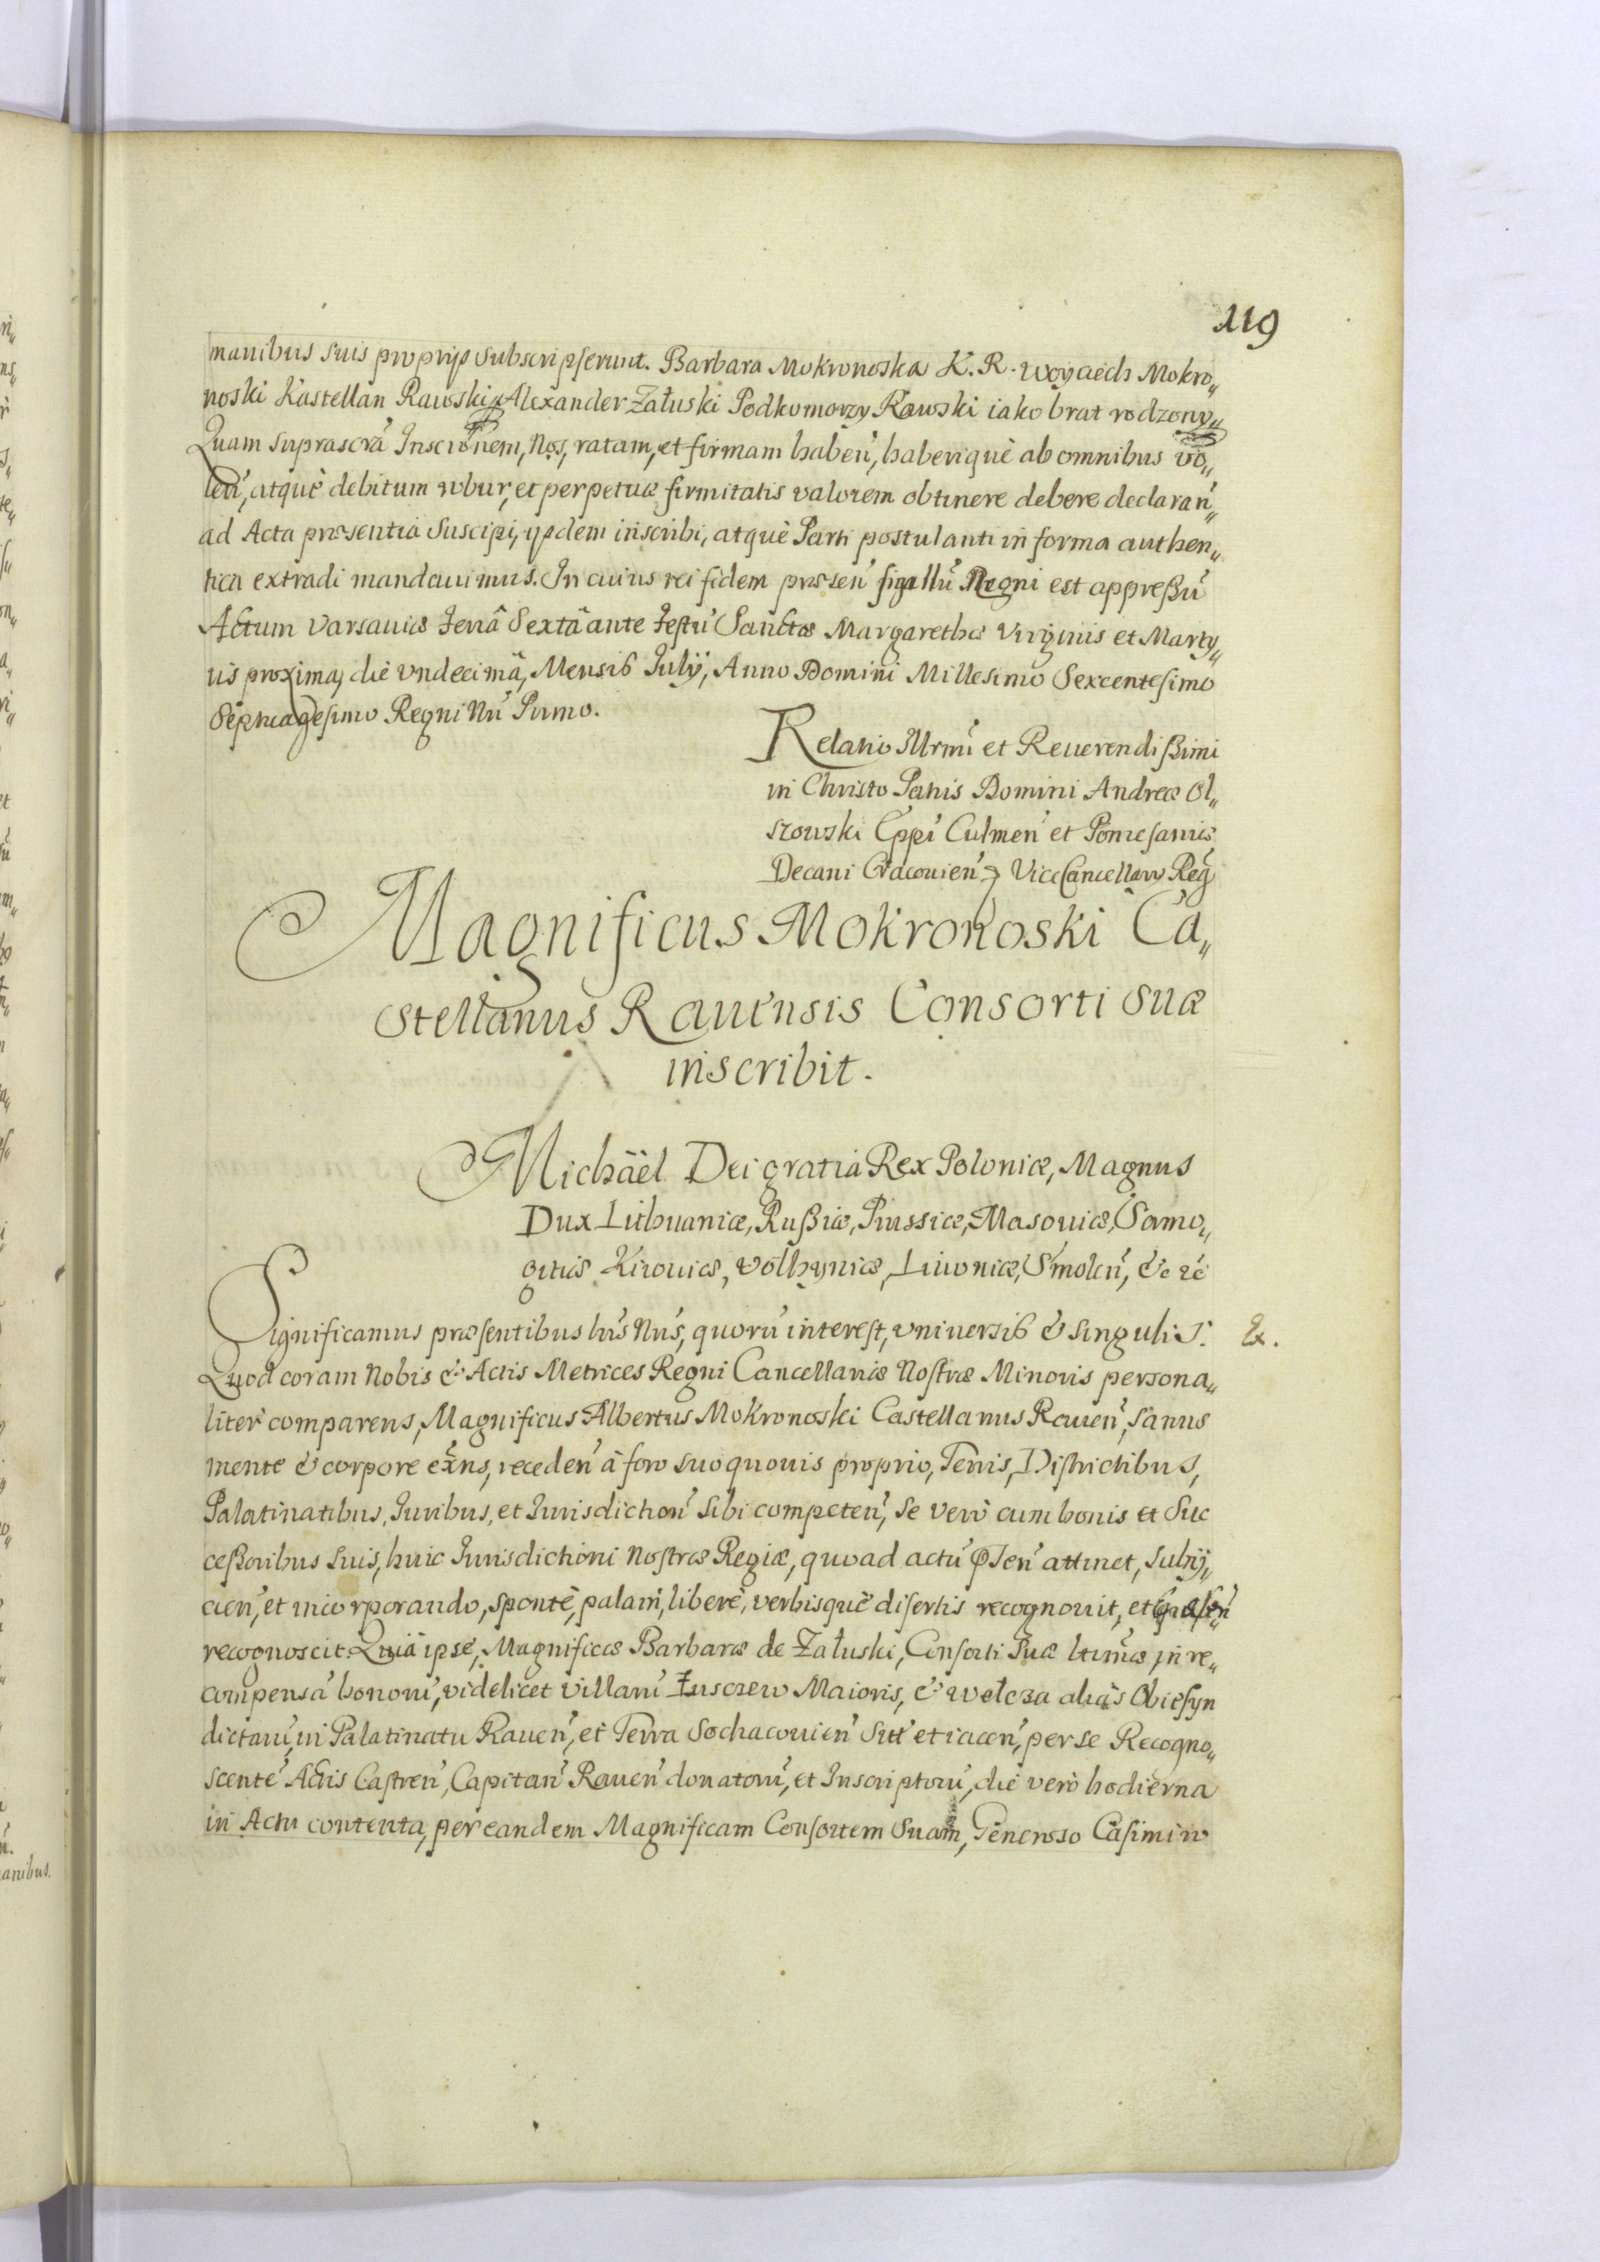 119
manibus suis proprijs subscripserunt. Barbara Mokronoska K. R. Woyciech Mokro„
noski Kastellan Rawski Alexander Załuski Podkomorzy Rawski iako brat rodzony„
Quam suprascrã Inscrõnem, Nos, ratam, et firmam haben̄, haberiquè ab omnibus vo„
len̄, atquè debitum robur, et perpetuæ firmitatis valorem obtinere debere declaran̄„
ad Acta præsentia Suscipi, ijsdem inscribi, atquè Parti postulanti in forma authen„
tica extradi mandauimus. In cuius rei fidem præsen̄ sigillū Regni est appreßū
Actum Varsauiæ Feriâ Sextâ ante Festū Sanctæ Margarethæ Virginis et Marty„
ris proxima, die vndecimâ, Mensis Iulij, Anno Domini Millesimo Sexcentesimo
Septuagesimo Regni Nrī Primo.
Relatio Illrmī et Reuerendißimi
in Christo Patris Domini Andreæ Ol„
szowski Eppī Culmen̄ et Pomesaniæ
Decani Cracouien̄, ViceCancellarij Reg̃
Magnificus Mokronoski Ca„
stellanus Rauensis Consorti Suæ
inscribit.
Michäël Dei gratia Rex Poloniæ, Magnus
Dux Lithuaniæ, Rußiæ, Prussiæ, Masouiæ, Samo„
gitiæ Kiiouiæ, Volhyniæ, Liuoniæ, Smolen̄, &c zc̄
Significamus præsentibus lrīs Nrīs, quorū interest, vniuersis & singulis. Ex.
Quod coram Nobis & Actis Metrices Regni Cancellariæ Nostræ Minoris persona„
liter comparens, Magnificus Albertus Mokronoski Castellanus Rauen̄, sanus
mente & corpore exn̄s, receden̄ à foro suo quouis proprio, Terris, Districtibus,
Palatinatibus, Iuribus, et Iurisdiction̄ sibi competen̄, se verò cum bonis et Suc
ceßoribus suis, huic Iurisdictioni Nostræ Regiæ, quoad actū ꝑsen̄ attinet, subij„
cien̄, et incorporando, spontè, palam, liberè, verbisquè disertis recognouit, et
recognoscit. Quia ipse, Magnificæ Barbaræ de Załuski, Consorti Suæ ltimæ, in re„
compensâ bonorū, videlicet villarū Łuszczew Maioris, & Wełcza aliàs Obiesyn
dictarū, in Palatinatu Rauen̄, et Terra Sochacouien̄ Sitt̄ et iacen̄, per se Recogno„
scentē Actis Castren̄, Capitan̄ Rauen̄ donatorū, et Inscriptorū, die verò hodierna
in Actu contenta, per eandem Magnificam Consortem Suam, Generoso Casimiro